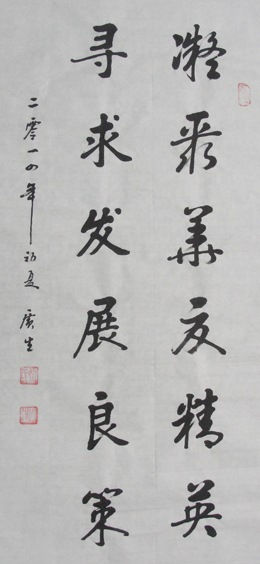 凝聚華友精英
寻求发展良策
二零一四年初夏 廣生